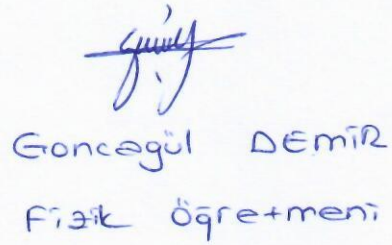 Goncagül DEMİR
Fizik Öğretmeni